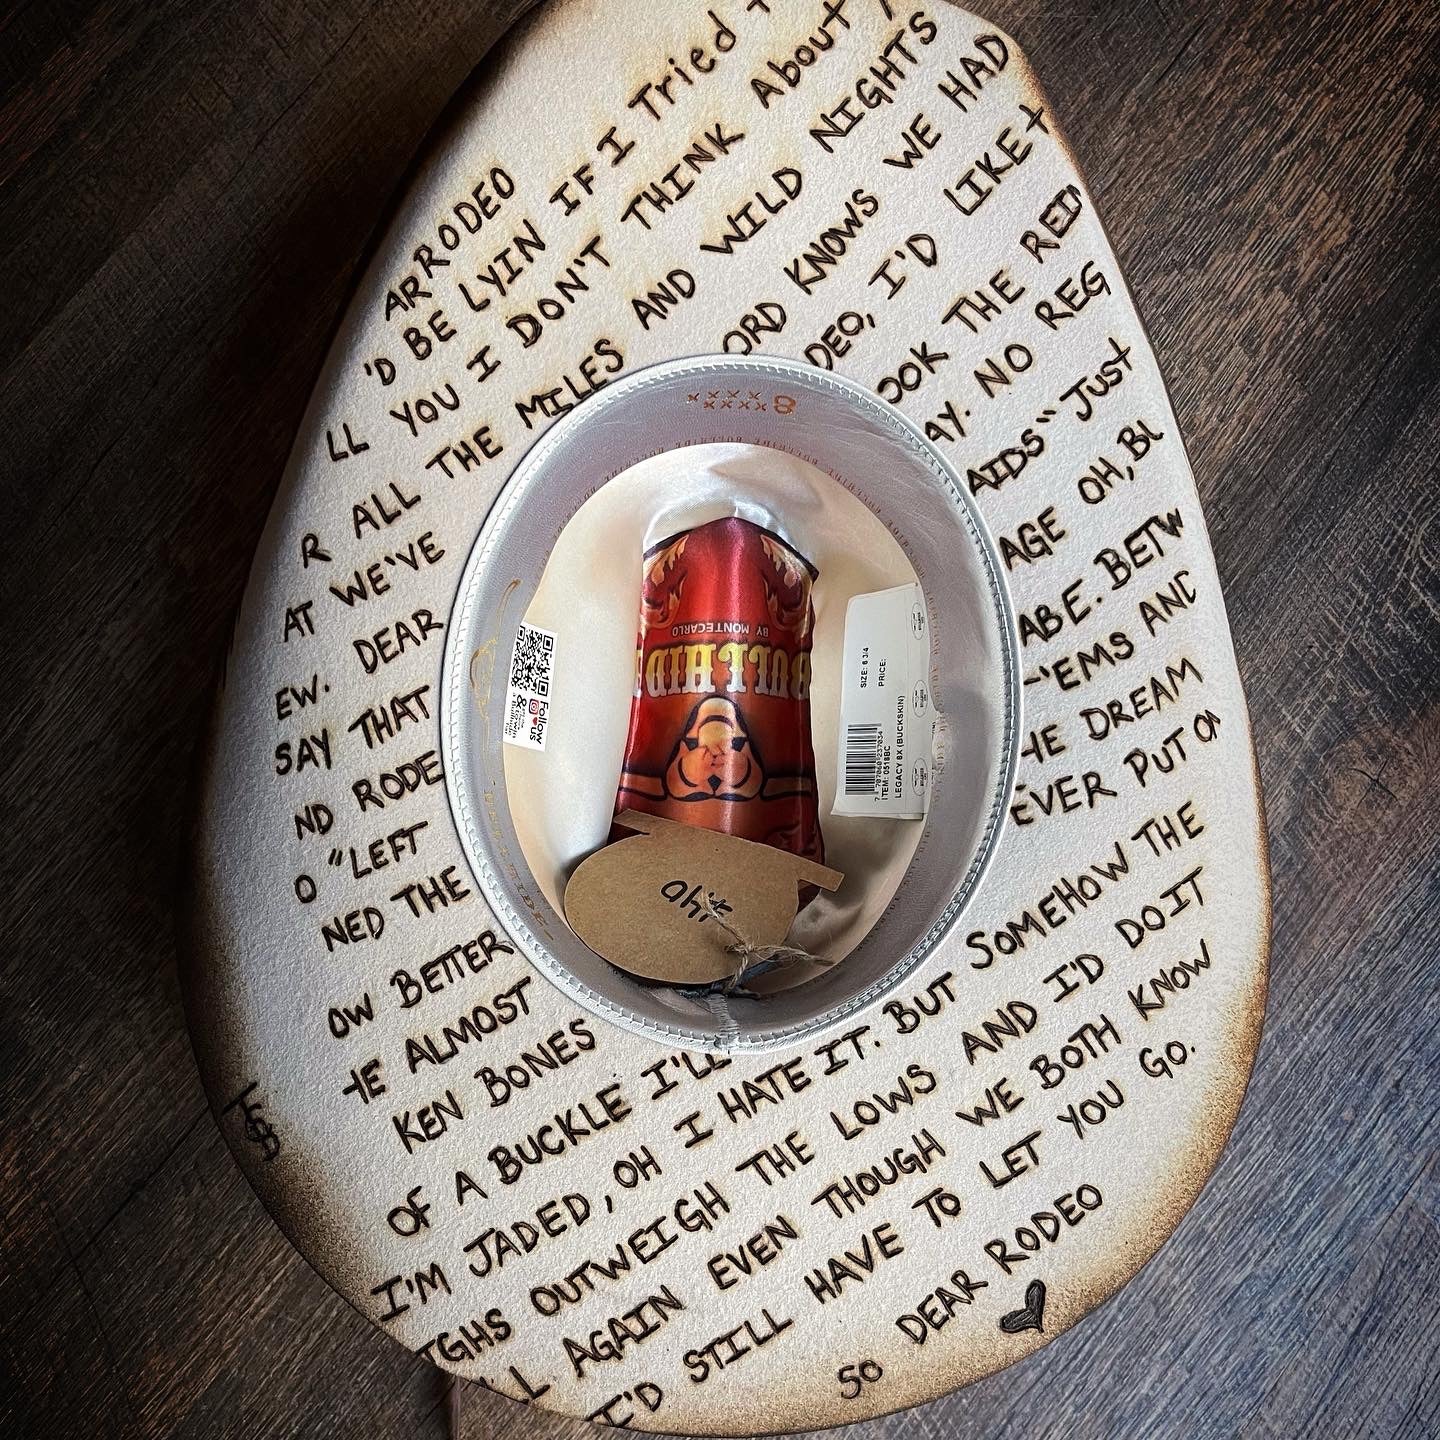 ARRODEO
'D BE LYIN IF I Tried
LL YOU I DON'T THINK About
R ALL THE MILES AND WILD NIGHTS
AT WE'VE ORD KNOWS WE HAD
EW. DEAR DEO, I'D LIKE t
SAY THAT OOK THE REIN
ND RODE AY. NO REG
O "LEFT AIDS" Just
NED THE AGE OH, BU
OW BETTER ABE. BETW
HE ALMOST -'EMS AND
KEN BONES HE DREAM
OF A BUCKLE I'LL EVER PUT ON
I'M JADED, OH I HATE IT. BUT SOMEHOW THE
IGHS OUTWEIGH THE LOWS AND I'D DO IT
LL AGAIN EVEN THOUGH WE BOTH KNOW
I'D STILL HAVE TO LET YOU GO.
SO DEAR RODEO
8 XXXXX XXXX
BULLHIDE
BY MONTECARLO
Follow us
SIZE: 6 3/4
PRICE:
ITEM: 0518BC
LEGACY 8X (BUCKSKIN)